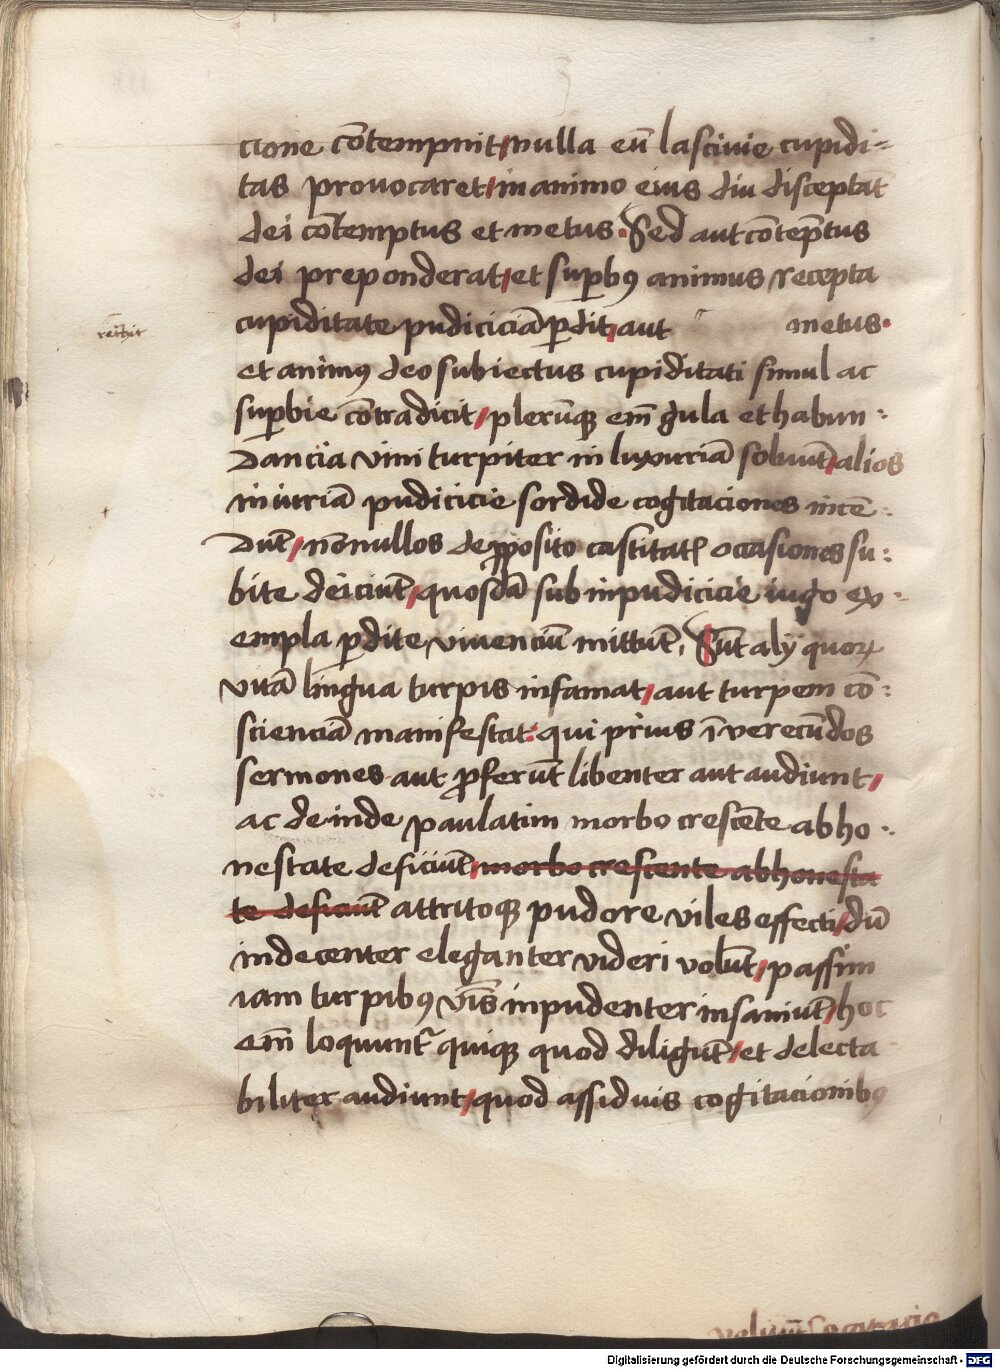 ctone cōtempnit/nulla eū lascivie cupidi=
tas provocaret/in animo eius diu disceptat
dei cōtemptus et metus. Sed aut cōtēptus
dei preponderat/et supbꝰ animus recepta
cupiditate pudiciciā ꝑdit/aut metus.
et animꝰ deo subiectus cupiditati simul ac
supbie cōtradicit/plerūqꝫ em̄ gula et habun:
dancia vini turpiter in luxuriā solvunt/alios
in iuriā pudicicie sordide cogitaciones incē:
dūt/nōnullos de ꝓposito castitatꝭ occasiones su:
bite deiciūt/quosdā sub inpudicicie iugo ex:
empla ꝑdite vivenciū mittūt, Sūt alij quoꝝ
vitā lingua turpis infamat/aut turpem cō:
scienciā manifestat: qui prius īverecūdos
sermones aut ꝓferūt libenter aut audiunt/
ac deinde paulatim morbo crescēte ab ho:
nestate deficiūt/morbo crescente ab honesta
te deficiūt attritoqꝫ pudore viles effecti/dū
indecenter eleganter videri volūt/passim
iam turpibꝰ vīs inpudenter insaniūt/hoc
em̄ loquunt᷑ quiqꝫ quod diligūt/et delecta
biliter audiunt/quod assiduis cogitacionibꝰ
Digitalisierung gefördert durch die Deutsche Forschungsgemeinschaft - DFG